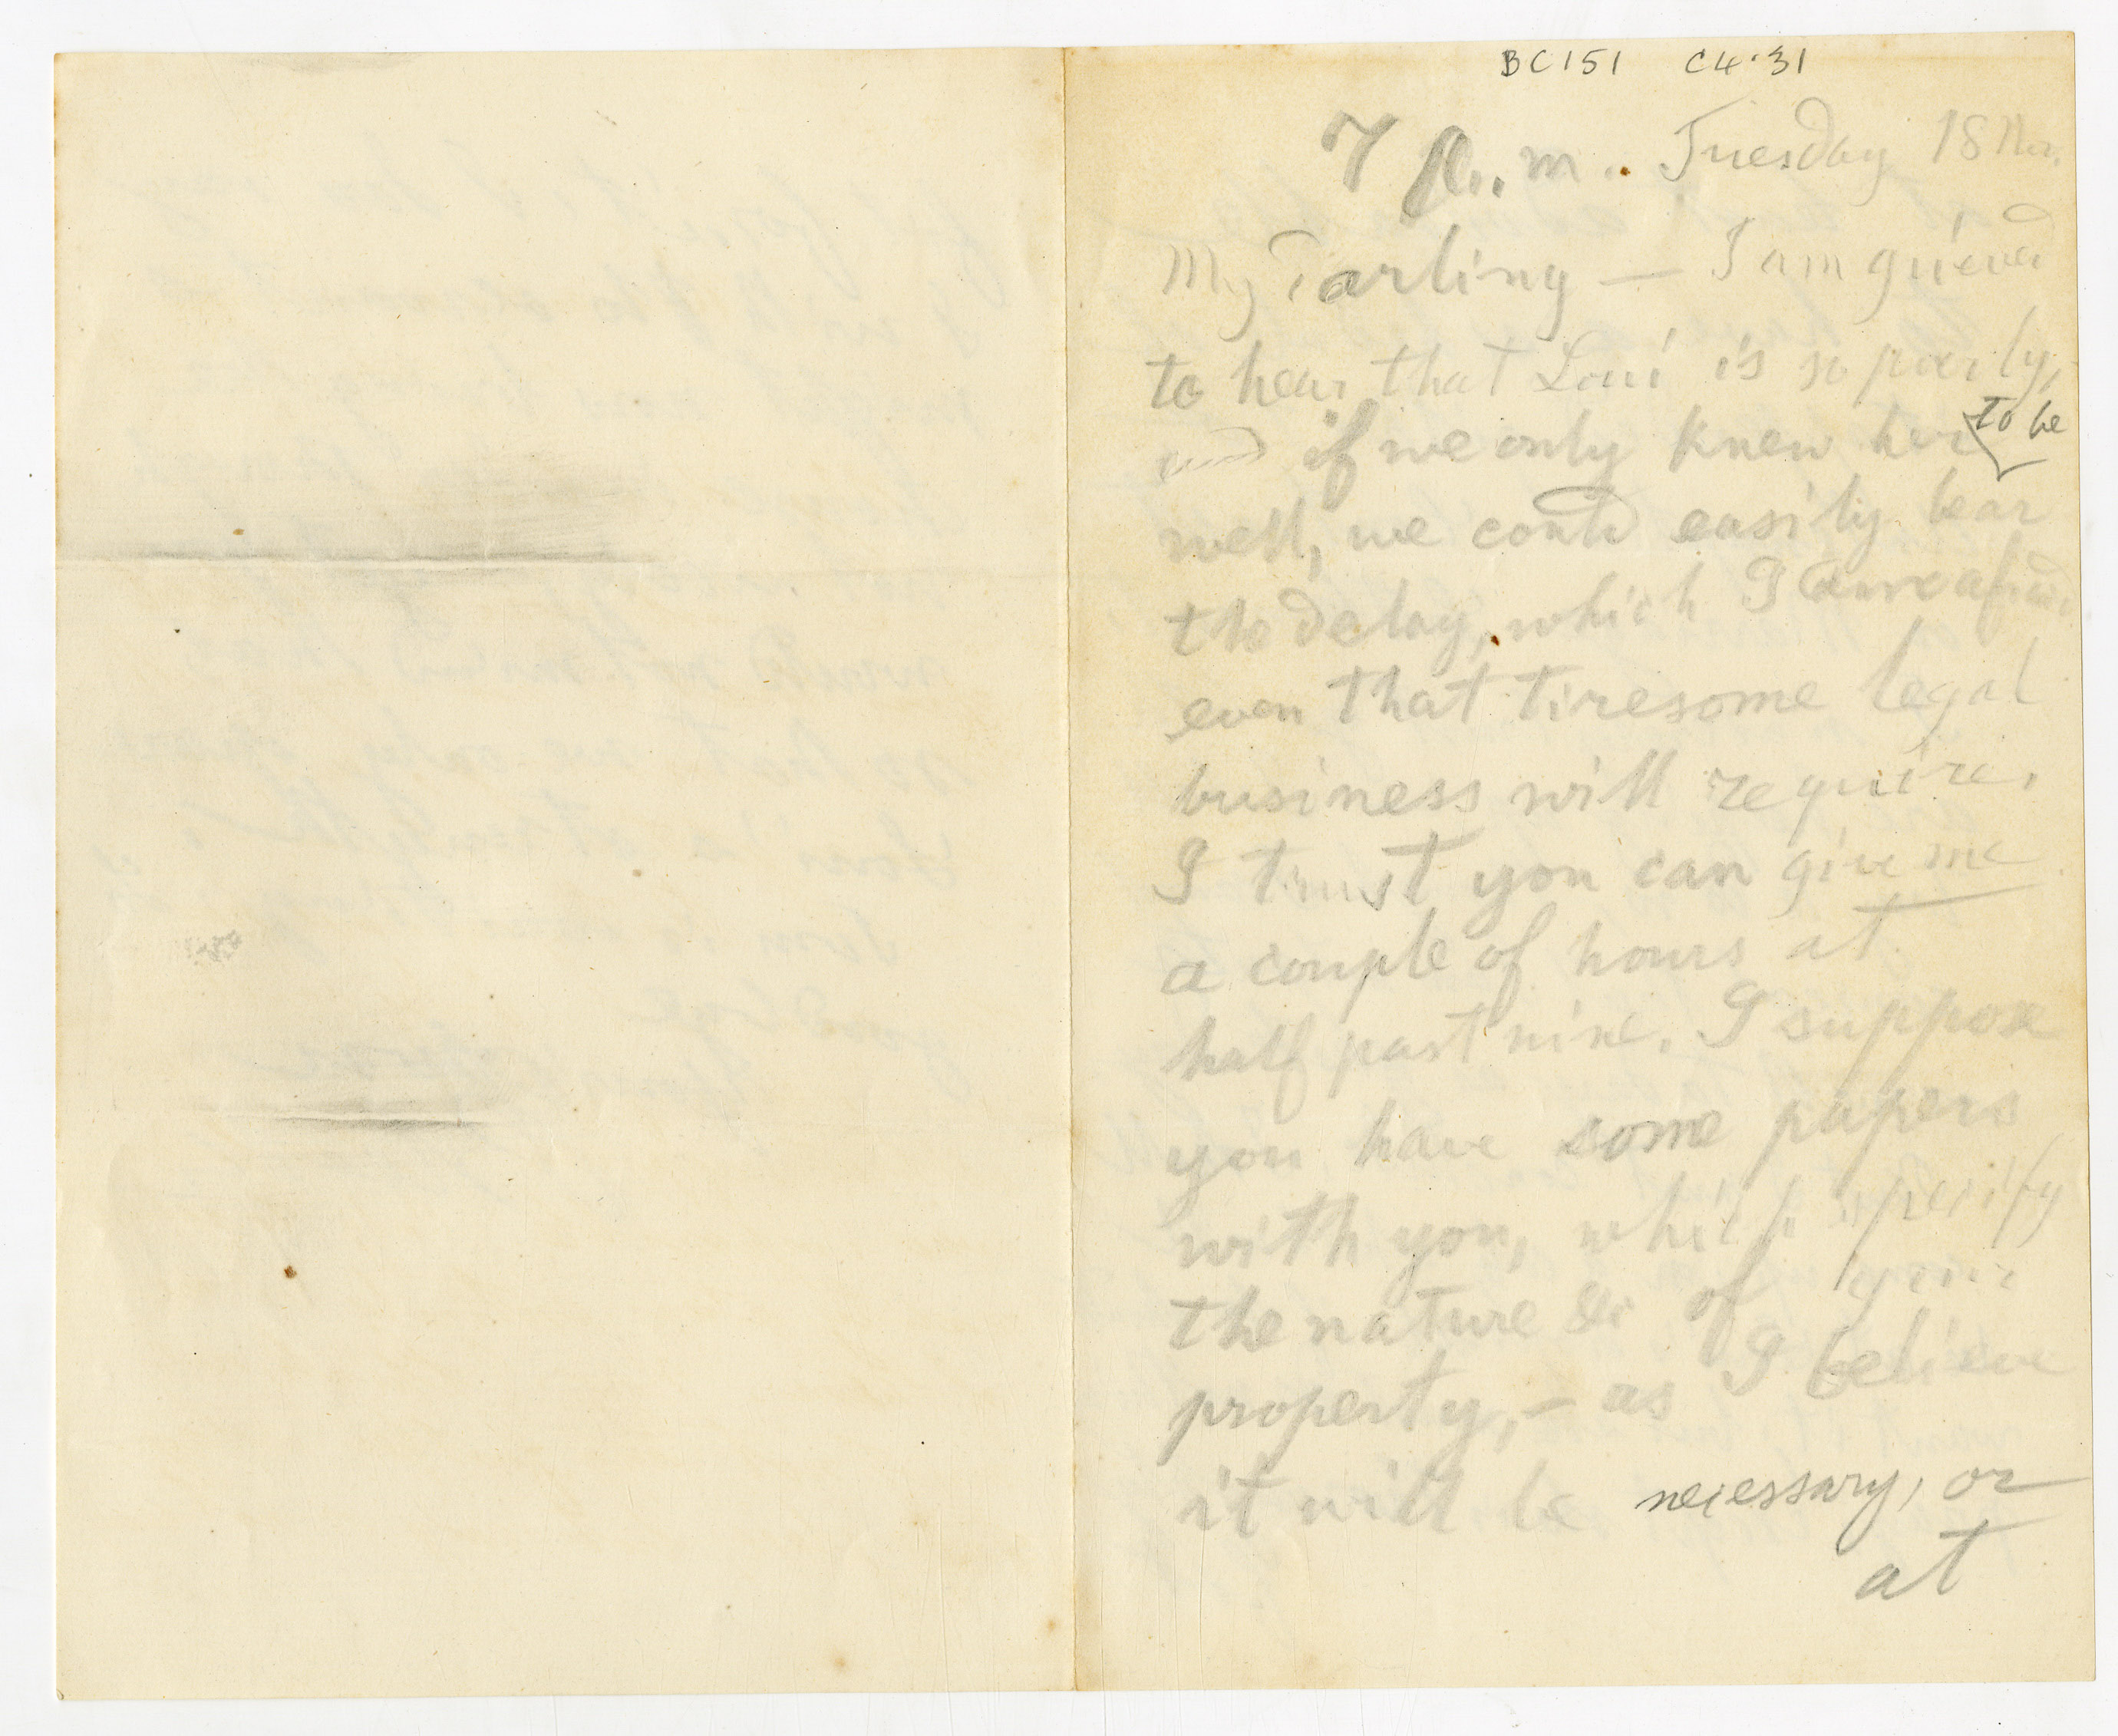 BC151 C4.31
7 p.m. Tuesday 18 Nov.
My Darling — I am grieved
to hear that Loui is so poorly,
and if we only knew her to be
well, we could easily bear
the delay, which I am afraid
even that tiresome legal
business will require.
I trust you can give me
a couple of hours at
half past nine. I suppose
you have some papers
with you, which specify
the nature &c of your
property, – as I believe
it will be necessary, or
at